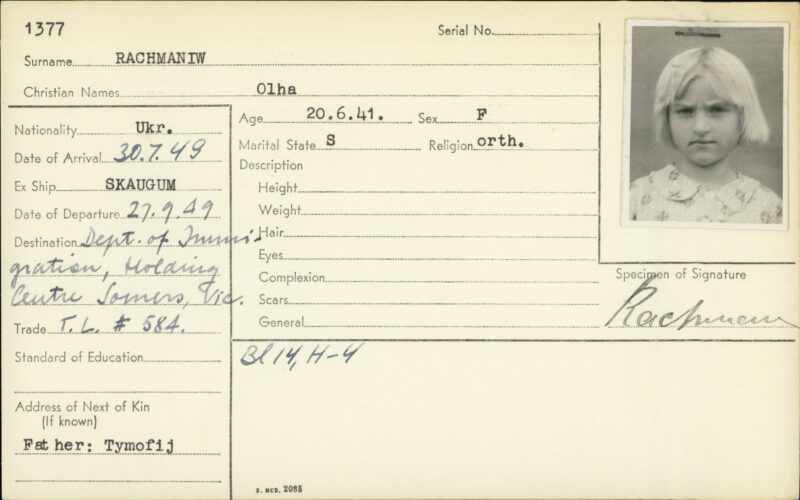 1377
Serial No.
Surname RACHMANIW
Christian Names Olha
Nationality Ukr.
Date of Arrival 30.7.49
Ex Ship SKAUGUM
Date of Departure 27.9.49
Destination Dept. of Immi-
gration, Holding
Centre Somers, Vic.
Trade T.L. # 584.
Standard of Education
Address of Next of Kin
(If known)
Father: Tymofij
Age 20.6.41. Sex F
Marital State S Religion orth.
Description
Height
Weight
Hair
Eyes
Complexion
Scars
General
Bl 14, H-4
S. MCD. 2085
Specimen of Signature